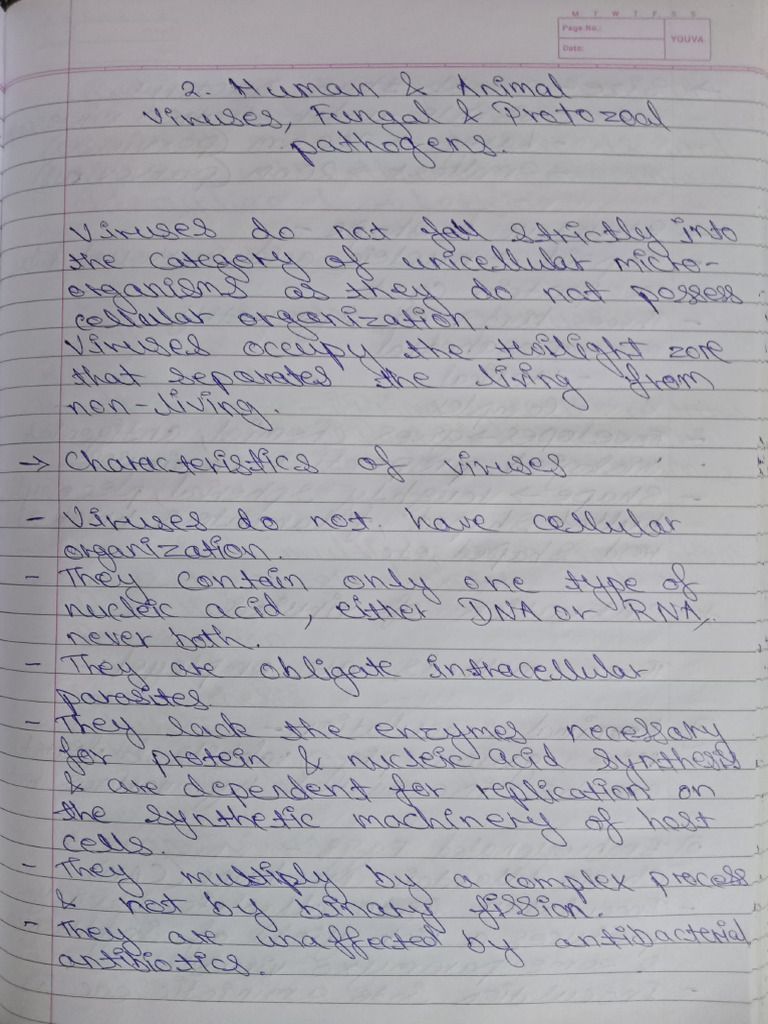 M T W T F S S
Page No.:
YOUVA
Date:
2. Human & Animal
Viruses, Fungal & Protozoal
pathogens.
Viruses do not fall strictly into
the category of unicellular micro-
organisms as they do not possess
cellular organization.
Viruses occupy the twilight zone
that separates the living from
non-living.
→ Characteristics of viruses
- Viruses do not have cellular
organization.
- They contain only one type of
nucleic acid, either DNA or RNA,
never both.
- They are obligate intracellular
parasites.
- They lack the enzymes necessary
for protein & nucleic acid synthesis
& are dependent for replication on
the synthetic machinery of host
cells.
- They multiply by a complex process
& not by binary fission.
- They are unaffected by antibacterial
antibiotics.